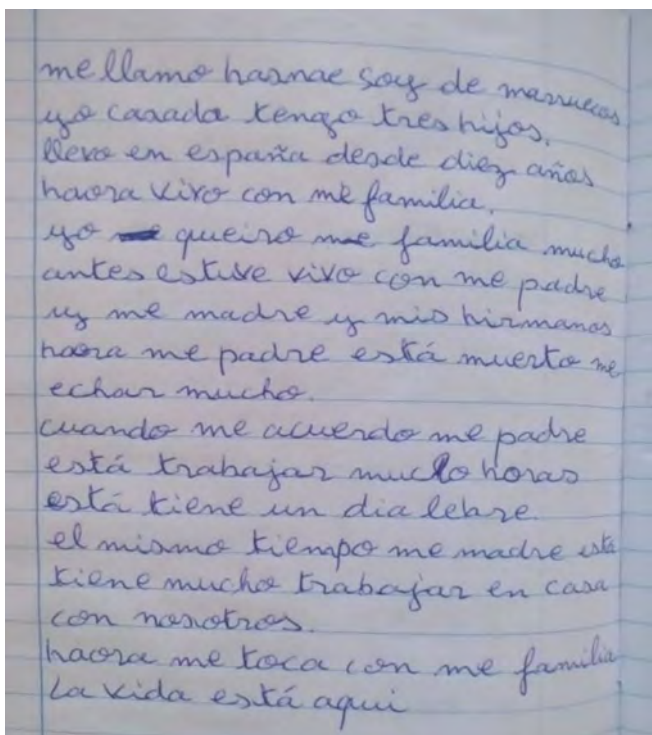 me llamo hasnae soy de marruecos
yo casada tengo tres hijos.
llevo en españa desde diez años
haora vivo con me familia.
yo queiro me familia mucho
antes estuve vivo con me padre
y me madre y mis hirmanos
haora me padre está muerto me
echar mucho.
cuando me acuerdo me padre
está trabajar mucho horas
está tiene un dia lebre.
el mismo tiempo me madre está
tiene mucho trabajar en casa
con nosotros.
haora me toca con me familia
La vida está aqui